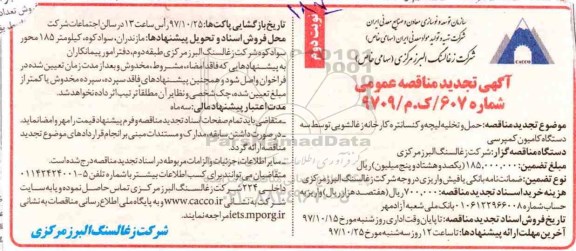 سازمان توسعه و نوسازی معادن و صنایع معدنی ایران
شرکت تهیه و تولید مواد معدنی ایران (سهامی خاص)
شرکت زغالسنگ البرز مرکزی (سهامی خاص)
CACCO
آگهی تجدید مناقصه عمومی
شماره ۶۰۷/ک.م/۹۷۰۹
موضوع تجدید مناقصه: حمل و تخلیه لیچه و کنسانتره کارخانه زغالشویی توسط سه
دستگاه کامیون کمپرسی
دستگاه مناقصه گزار: شرکت زغالسنگ البرز مرکزی
مبلغ تضمین: ۱۸۵,۰۰۰,۰۰۰ (یکصد و هشتاد و پنج میلیون) ریال
نوع تضمین: ضمانتنامه بانکی یا فیش واریزی در وجه شرکت زغالسنگ البرز مرکزی
هزینه خرید اسناد تجدید مناقصه: ۷۰۰,۰۰۰ ریال (هفتصد هزار) ریال واریز به
حساب شماره ۰۱۰۶۱۲۳۹۶۶۰۰۸ بانک ملی شعبه آزادمهر
تاریخ فروش اسناد تجدید مناقصه: تا پایان وقت اداری روز شنبه مورخ ۹۷/۱۰/۱۵
آخرین مهلت ارائه پیشنهادها: تا ساعت ۱۲ روز سه شنبه مورخ ۹۷/۱۰/۲۵
نوبت دوم
تاریخ بازگشایی پاکت‌ها: ۹۷/۱۰/۲۵ رأس ساعت ۱۳ در سالن اجتماعات شرکت
محل فروش اسناد و تحویل پیشنهادها: مازندران، سوادکوه، کیلومتر ۱۸۵ محور
سوادکوه شرکت زغالسنگ البرز مرکزی طبقه دوم، دفتر امور پیمانکاران
به پیشنهادهایی که فاقد امضاء، مشروط، مخدوش و بعد از مدت زمان تعیین شده در
فراخوان واصل شود و همچنین پیشنهادهای فاقد سپرده، سپرده مخدوش یا کمتر از
مبلغ تعیین شده، چک شخصی و نظایر آن مطلقاً ترتیب اثر داده نخواهد شد.
مدت اعتبار پیشنهاد مالی: سه ماه
متقاضی باید تمام صفحات اسناد تجدید مناقصه و فرم پیشنهاد قیمت را مهر و امضا نماید.
در صورت داشتن سابقه، مدارک و مستندات مبنی بر انجام قراردادهای موضوع تجدید
مناقصه ارائه گردد
سایر اطلاعات، جزئیات و الزامات مربوطه در اسناد تجدید مناقصه درج شده است.
متقاضیان می‌توانند برای کسب اطلاعات بیشتر با شماره تلفن ۵-۰۱۱۴۲۴۲۴۰۰۱
داخلی ۲۲۴ شرکت زغالسنگ البرز مرکزی تماس حاصل نموده و یا به سایت
www.cacco.ir و پایگاه ملی اطلاع رسانی مناقصات به نشانی
iets.mporg.ir مراجعه نمایند.
شرکت زغالسنگ البرز مرکزی